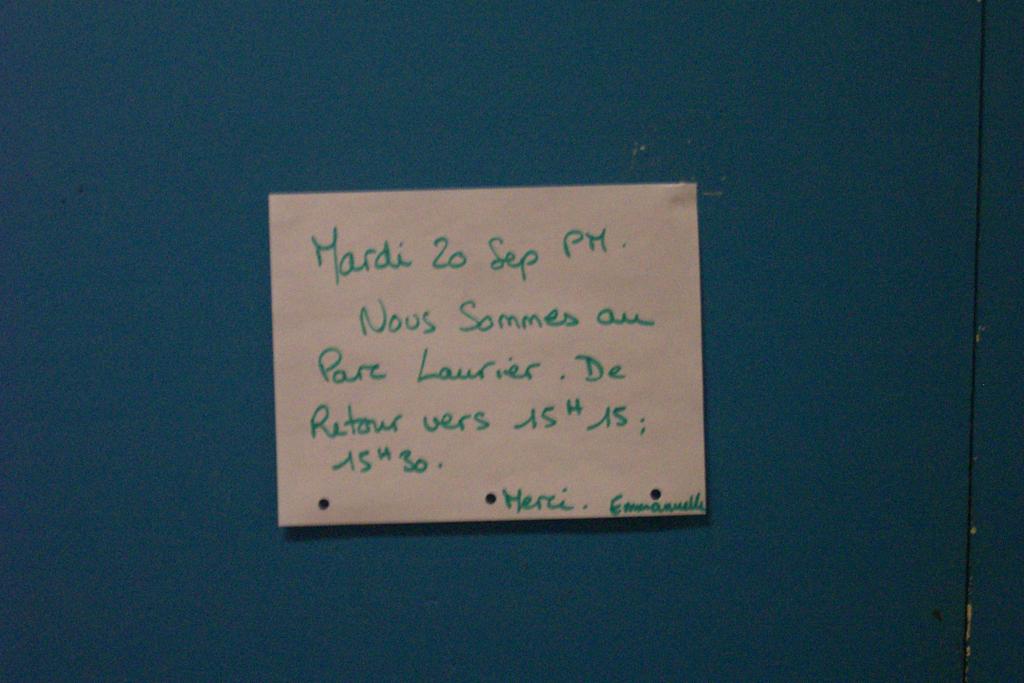 Mardi 20 Sep PM.
Nous Sommes au
Parc Laurier. De
Retour vers 15H15;
15H30.
Merci. Emmanuelle